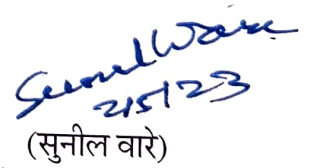 Sunil Ware
2/5/23
(सुनील वारे)